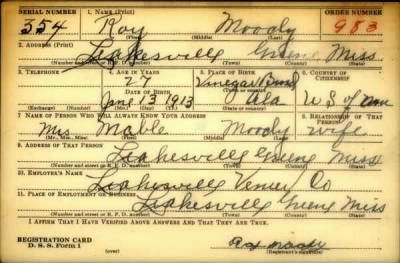 SERIAL NUMBER 1. NAME (Print) ORDER NUMBER
354 Roy Moody 983
(First) (Middle) (Last)
2. ADDRESS (Print)
Leakesville Greene Miss
(Number and street or R. F. D. number) (Town) (County) (State)
3. TELEPHONE 4. AGE IN YEARS 5. PLACE OF BIRTH 6. COUNTRY OF CITIZENSHIP
27 Vinegar Bend
DATE OF BIRTH (Town or county)
June 13 1913 Ala U S of Am
(Exchange) (Number) (Mo.) (Day) (Yr.) (State or country)
7. NAME OF PERSON WHO WILL ALWAYS KNOW YOUR ADDRESS 8. RELATIONSHIP OF THAT PERSON
Mrs. Mable Moody wife
(Mr., Mrs., Miss) (First) (Middle) (Last)
9. ADDRESS OF THAT PERSON
Leakesville Greene Miss
(Number and street or R. F. D. number) (Town) (County) (State)
10. EMPLOYER'S NAME
Leakesville Veneer Co
11. PLACE OF EMPLOYMENT OR BUSINESS
Leakesville Greene Miss
(Number and street or R. F. D. number) (Town) (County) (State)
I AFFIRM THAT I HAVE VERIFIED ABOVE ANSWERS AND THAT THEY ARE TRUE.
REGISTRATION CARD
D. S. S. Form 1 Roy Moody
(over) (Registrant's signature)